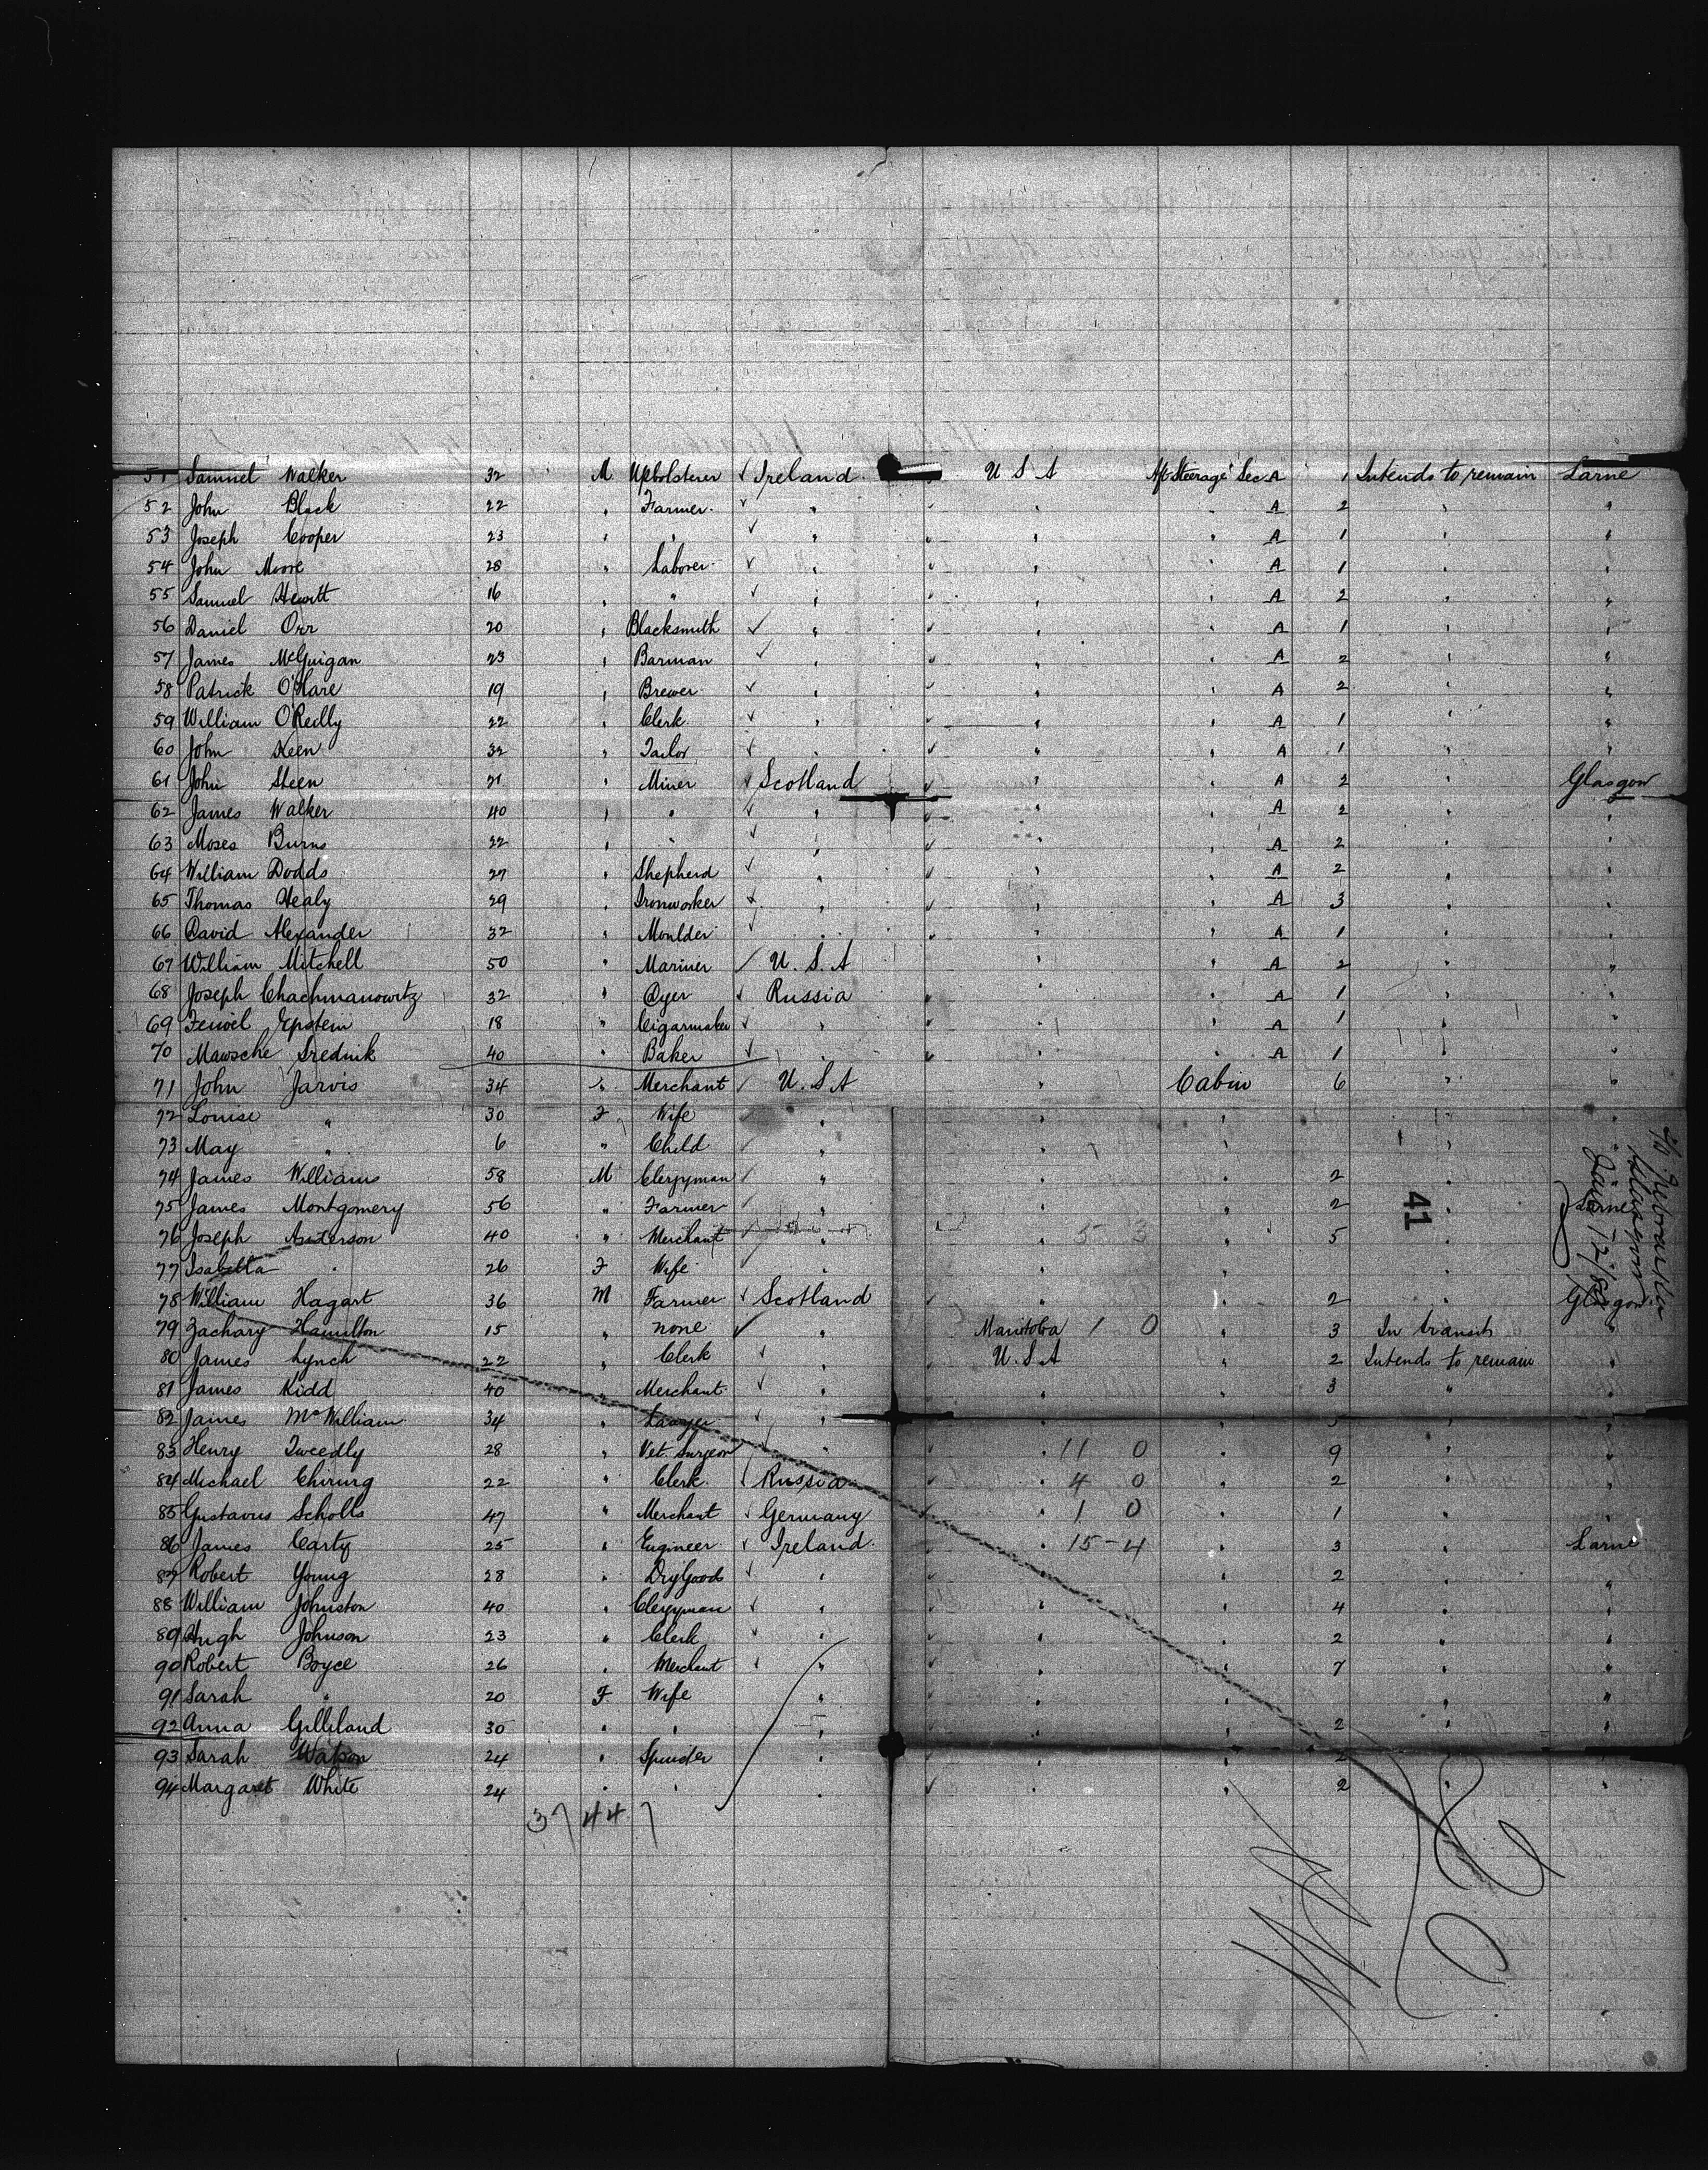 51 Samuel Walker 32 M Upholsterer ✓ Ireland U S A Aft Steerage Sec A 1 Intends to remain Larne
52 John Black 22 " Farmer ✓ " " " A 2 " "
53 Joseph Cooper 23 " " ✓ " " " A 1 " "
54 John Moore 28 " Laborer ✓ " " " A 1 " "
55 Samuel Hewitt 16 " " ✓ " " " A 2 " "
56 Daniel Orr 20 " Blacksmith ✓ " " " A 1 " "
57 James McGuigan 23 " Barman ✓ " " " A 2 " "
58 Patrick O'Hare 19 " Brewer ✓ " " " A 2 " "
59 William O'Reilly 22 " Clerk ✓ " " " A 1 " "
60 John Keen 32 " Tailor ✓ " " " A 1 " "
61 John Steen 21 " Miner ✓ Scotland " " A 2 " Glasgow
62 James Walker 40 " " ✓ " " " A 2 " "
63 Moses Burns 22 " " ✓ " " " A 2 " "
64 William Dodds 27 " Shepherd ✓ " " " A 2 " "
65 Thomas Healy 29 " Ironworker ✓ " " " A 3 " "
66 David Alexander 32 " Moulder ✓ " " " A 1 " "
67 William Mitchell 50 " Mariner ✓ U. S. A " " A 2 " "
68 Joseph Chachmanowitz 32 " Dyer ✓ Russia " " A 1 " "
69 Feiwel Epstein 18 " Cigarmaker ✓ " " " A 1 " "
70 Mawsche Srednik 40 " Baker ✓ " " " A 1 " "
71 John Jarvis 34 " Merchant ✓ U. S A " Cabin 6 " "
72 Louise " 30 F Wife " " " " "
73 May " 6 " Child ✓ " " " " "
74 James Williams 58 M Clergyman ✓ " " " 2 " "
75 James Montgomery 56 " Farmer ✓ " " " 2 " Larne
76 Joseph Anderson 40 " Merchant ✓ " " 5 3 " 5 "
77 Isabella " 26 F Wife ✓ " " " "
78 William Hagart 36 M Farmer ✓ Scotland " " 2 " Glasgow
79 Zachary Hamilton 15 " none ✓ " Manitoba 1 0 " 3 In transit "
80 James Lynch 22 " Clerk ✓ " U. S. A " 2 Intends to remain "
81 James Kidd 40 " Merchant ✓ " " " 3 " "
82 James McWilliam 34 " Lawyer ✓ " " " 5 " "
83 Henry Tweedly 28 " Vet. Surgeon ✓ " " 11 0 " 9 " "
84 Michael Chirurg 22 " Clerk ✓ Russia " 4 0 " 2 " "
85 Gustavus Scholls 47 " Merchant ✓ Germany " 1 0 " 1 " "
86 James Carty 25 " Engineer ✓ Ireland " 15-4 " 3 " Larne
87 Robert Young 28 " DryGoods ✓ " " " 2 " "
88 William Johnston 40 " Clergyman ✓ " " " 4 " "
89 Hugh Johnson 23 " Clerk ✓ " " " 2 " "
90 Robert Boyce 26 " Merchant ✓ " " " 7 " "
91 Sarah " 20 F Wife " " " " "
92 Anna Gilliland 30 " " " " " 2 " "
93 Sarah Watson 24 " Spinster " " " 2 " "
94 Margaret White 24 " " " " " 2 " "
37 44 7
41